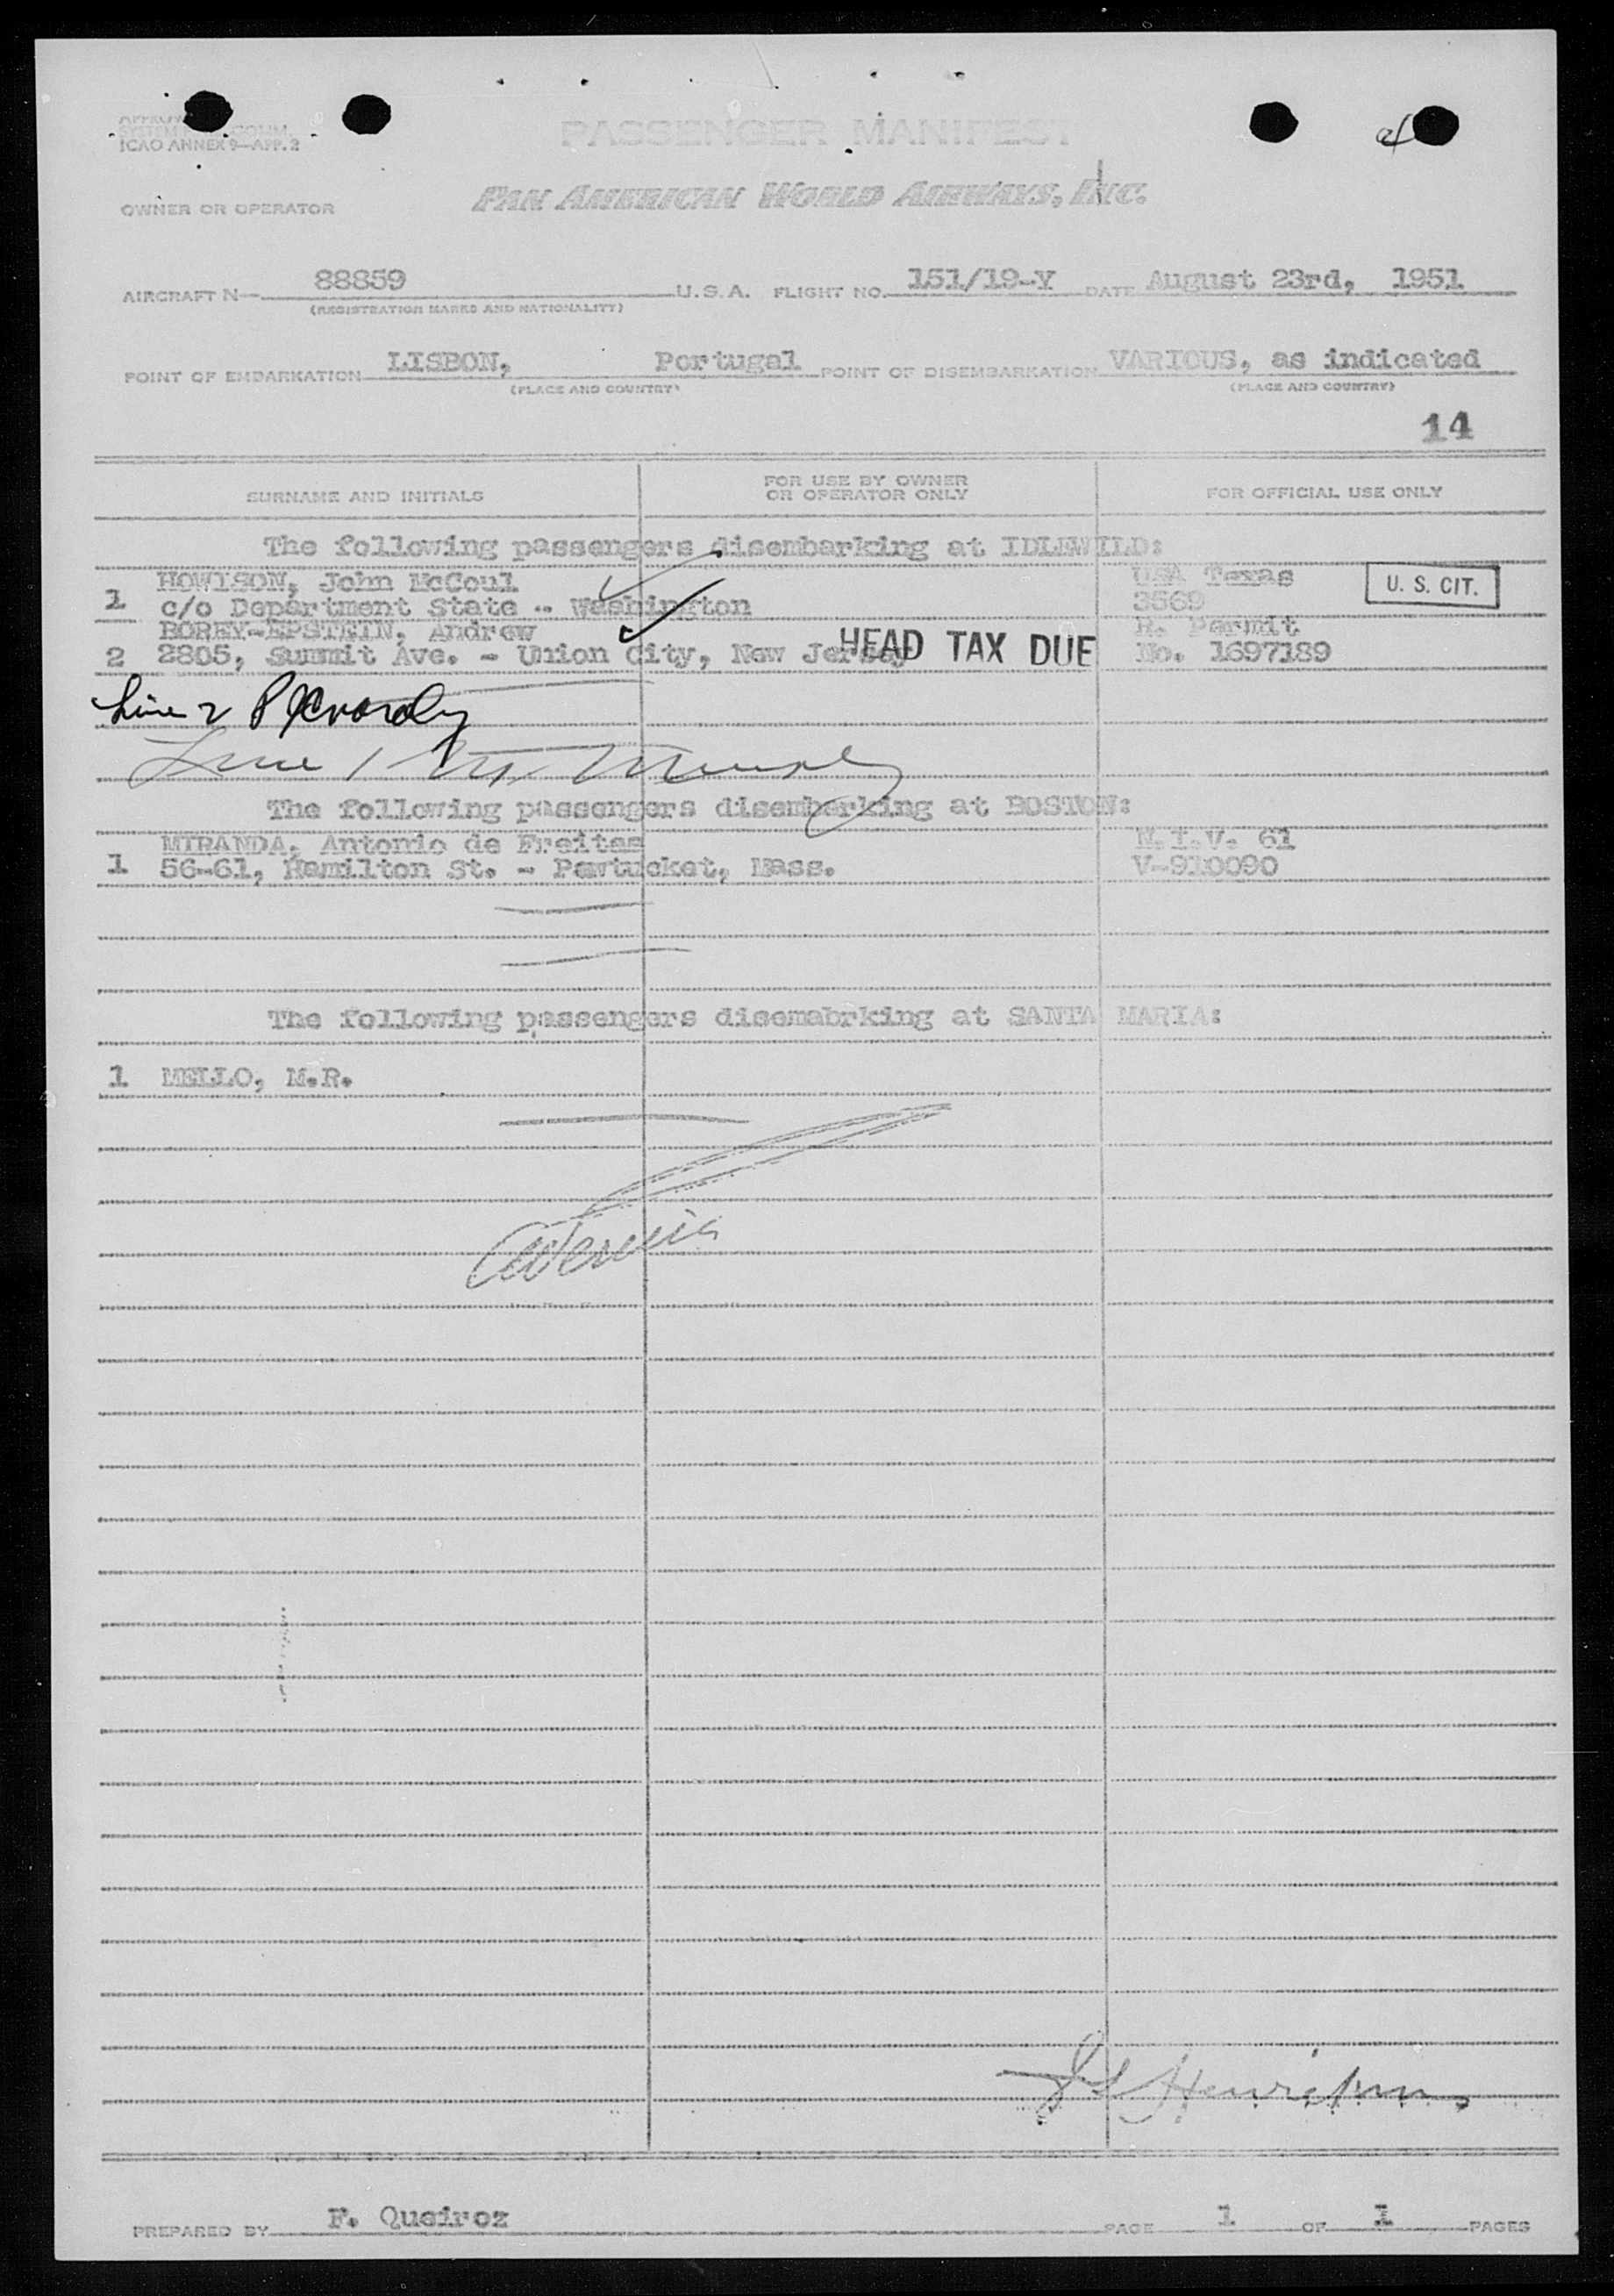 SYSTEM COMM.
ICAO ANNEX 9—APP. 2
PASSENGER MANIFEST
OWNER OR OPERATOR PAN AMERICAN WORLD AIRWAYS, INC.
AIRCRAFT N— 88859 U.S.A. FLIGHT NO. 151/19-Y DATE August 23rd, 1951
(REGISTRATION MARKS AND NATIONALITY)
POINT OF EMBARKATION LISBON, Portugal POINT OF DISEMBARKATION VARIOUS, as indicated
(PLACE AND COUNTRY) (PLACE AND COUNTRY)
14
SURNAME AND INITIALS FOR USE BY OWNER OR OPERATOR ONLY FOR OFFICIAL USE ONLY
The following passengers disembarking at IDLEWILD:
HOWISON, John McCoul USA Texas U. S. CIT.
1 c/o Department State -- Washington 3569
BOREY-EPSTEIN, Andrew R. Permit
2 2805, Summit Ave. - Union City, New Jersey HEAD TAX DUE No. 1697189
Line 2
Line 1
The following passengers disembarking at BOSTON:
MIRANDA, Antonio de Freitas N.I.V. 61
1 56-61, Hamilton St. - Pawtucket, Mass. V-910090
The following passengers disemabrking at SANTA MARIA:
1 MELLO, M.R.
PREPARED BY F. Queiroz PAGE 1 OF 1 PAGES